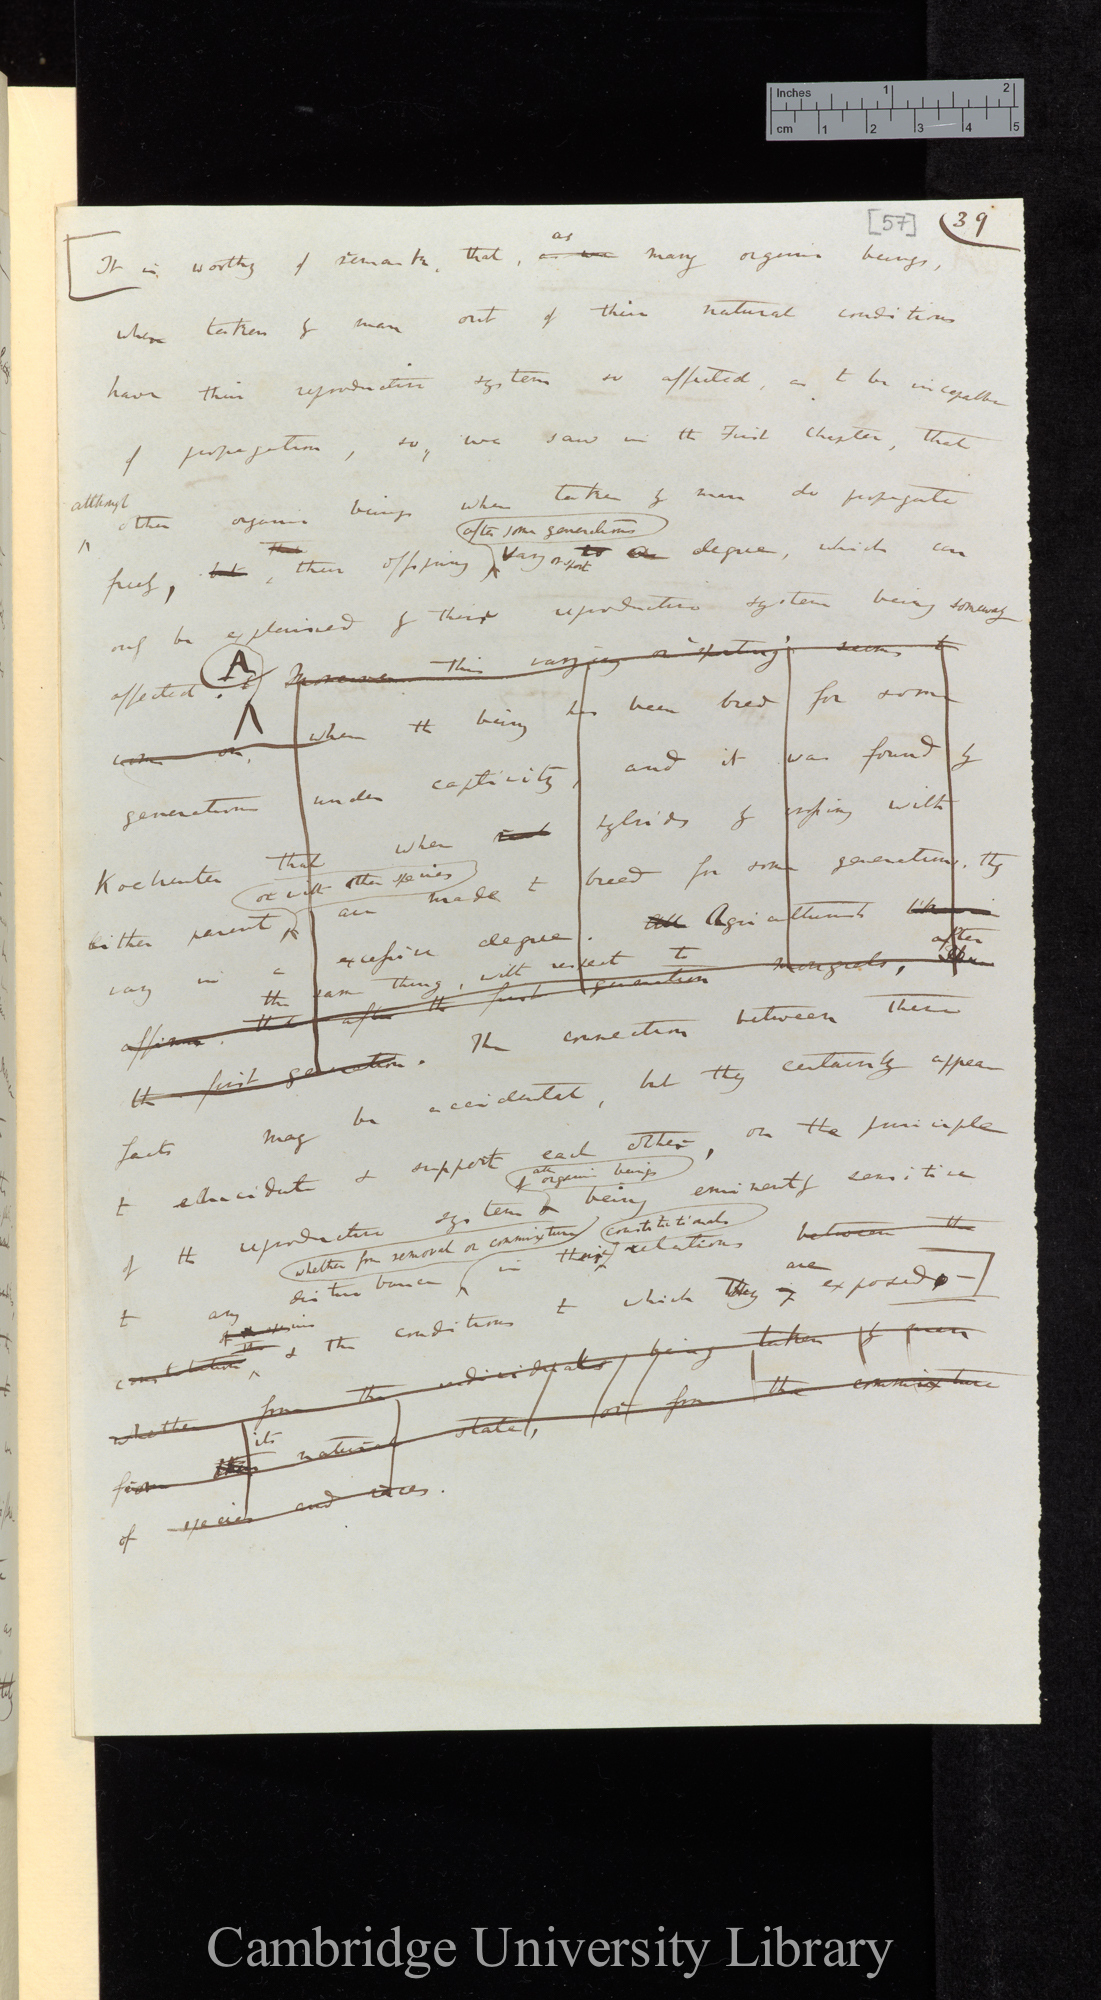 Inches 1 2
cm 1 2 3 4 5
[57] 39
as
It is worthy of remark, that, as we many organic beings,
when taken by man out of their natural conditions
have their reproductive system so affected, as to be incapable
of propagation, so, we saw in the First Chapter, that
although
other organic beings when taken by man do propagate
after some generations
freely, but, their offspring vary or sport to a degree, which can
only be explained by their reproductive system being someway
affected. A Moreover this varying or "sporting" seems to
come on, when the being has been bred for some
generations under captivity, and it was found by
Koelreuter that when hybrids by crossing with
or with other species
either parent are made to breed for some generations, they
vary in a excessive degree. All Agriculturists
affirm the same thing, with respect to mongrels, after
that after the first generation
the first generation. The connection between these
facts may be accidental, but they certainly appear
to elucidate & support each other, on the principle
of all organic beings
of the reproductive system being eminently sensitive
whether from removal or commixture constitutional
to any disturbance in their relations between the
of a species are
constitution the & the conditions to which they exposed.—
whether from the individuals being taken by man
its
from their natural state, or from the commixture
of species and races.
Cambridge University Library